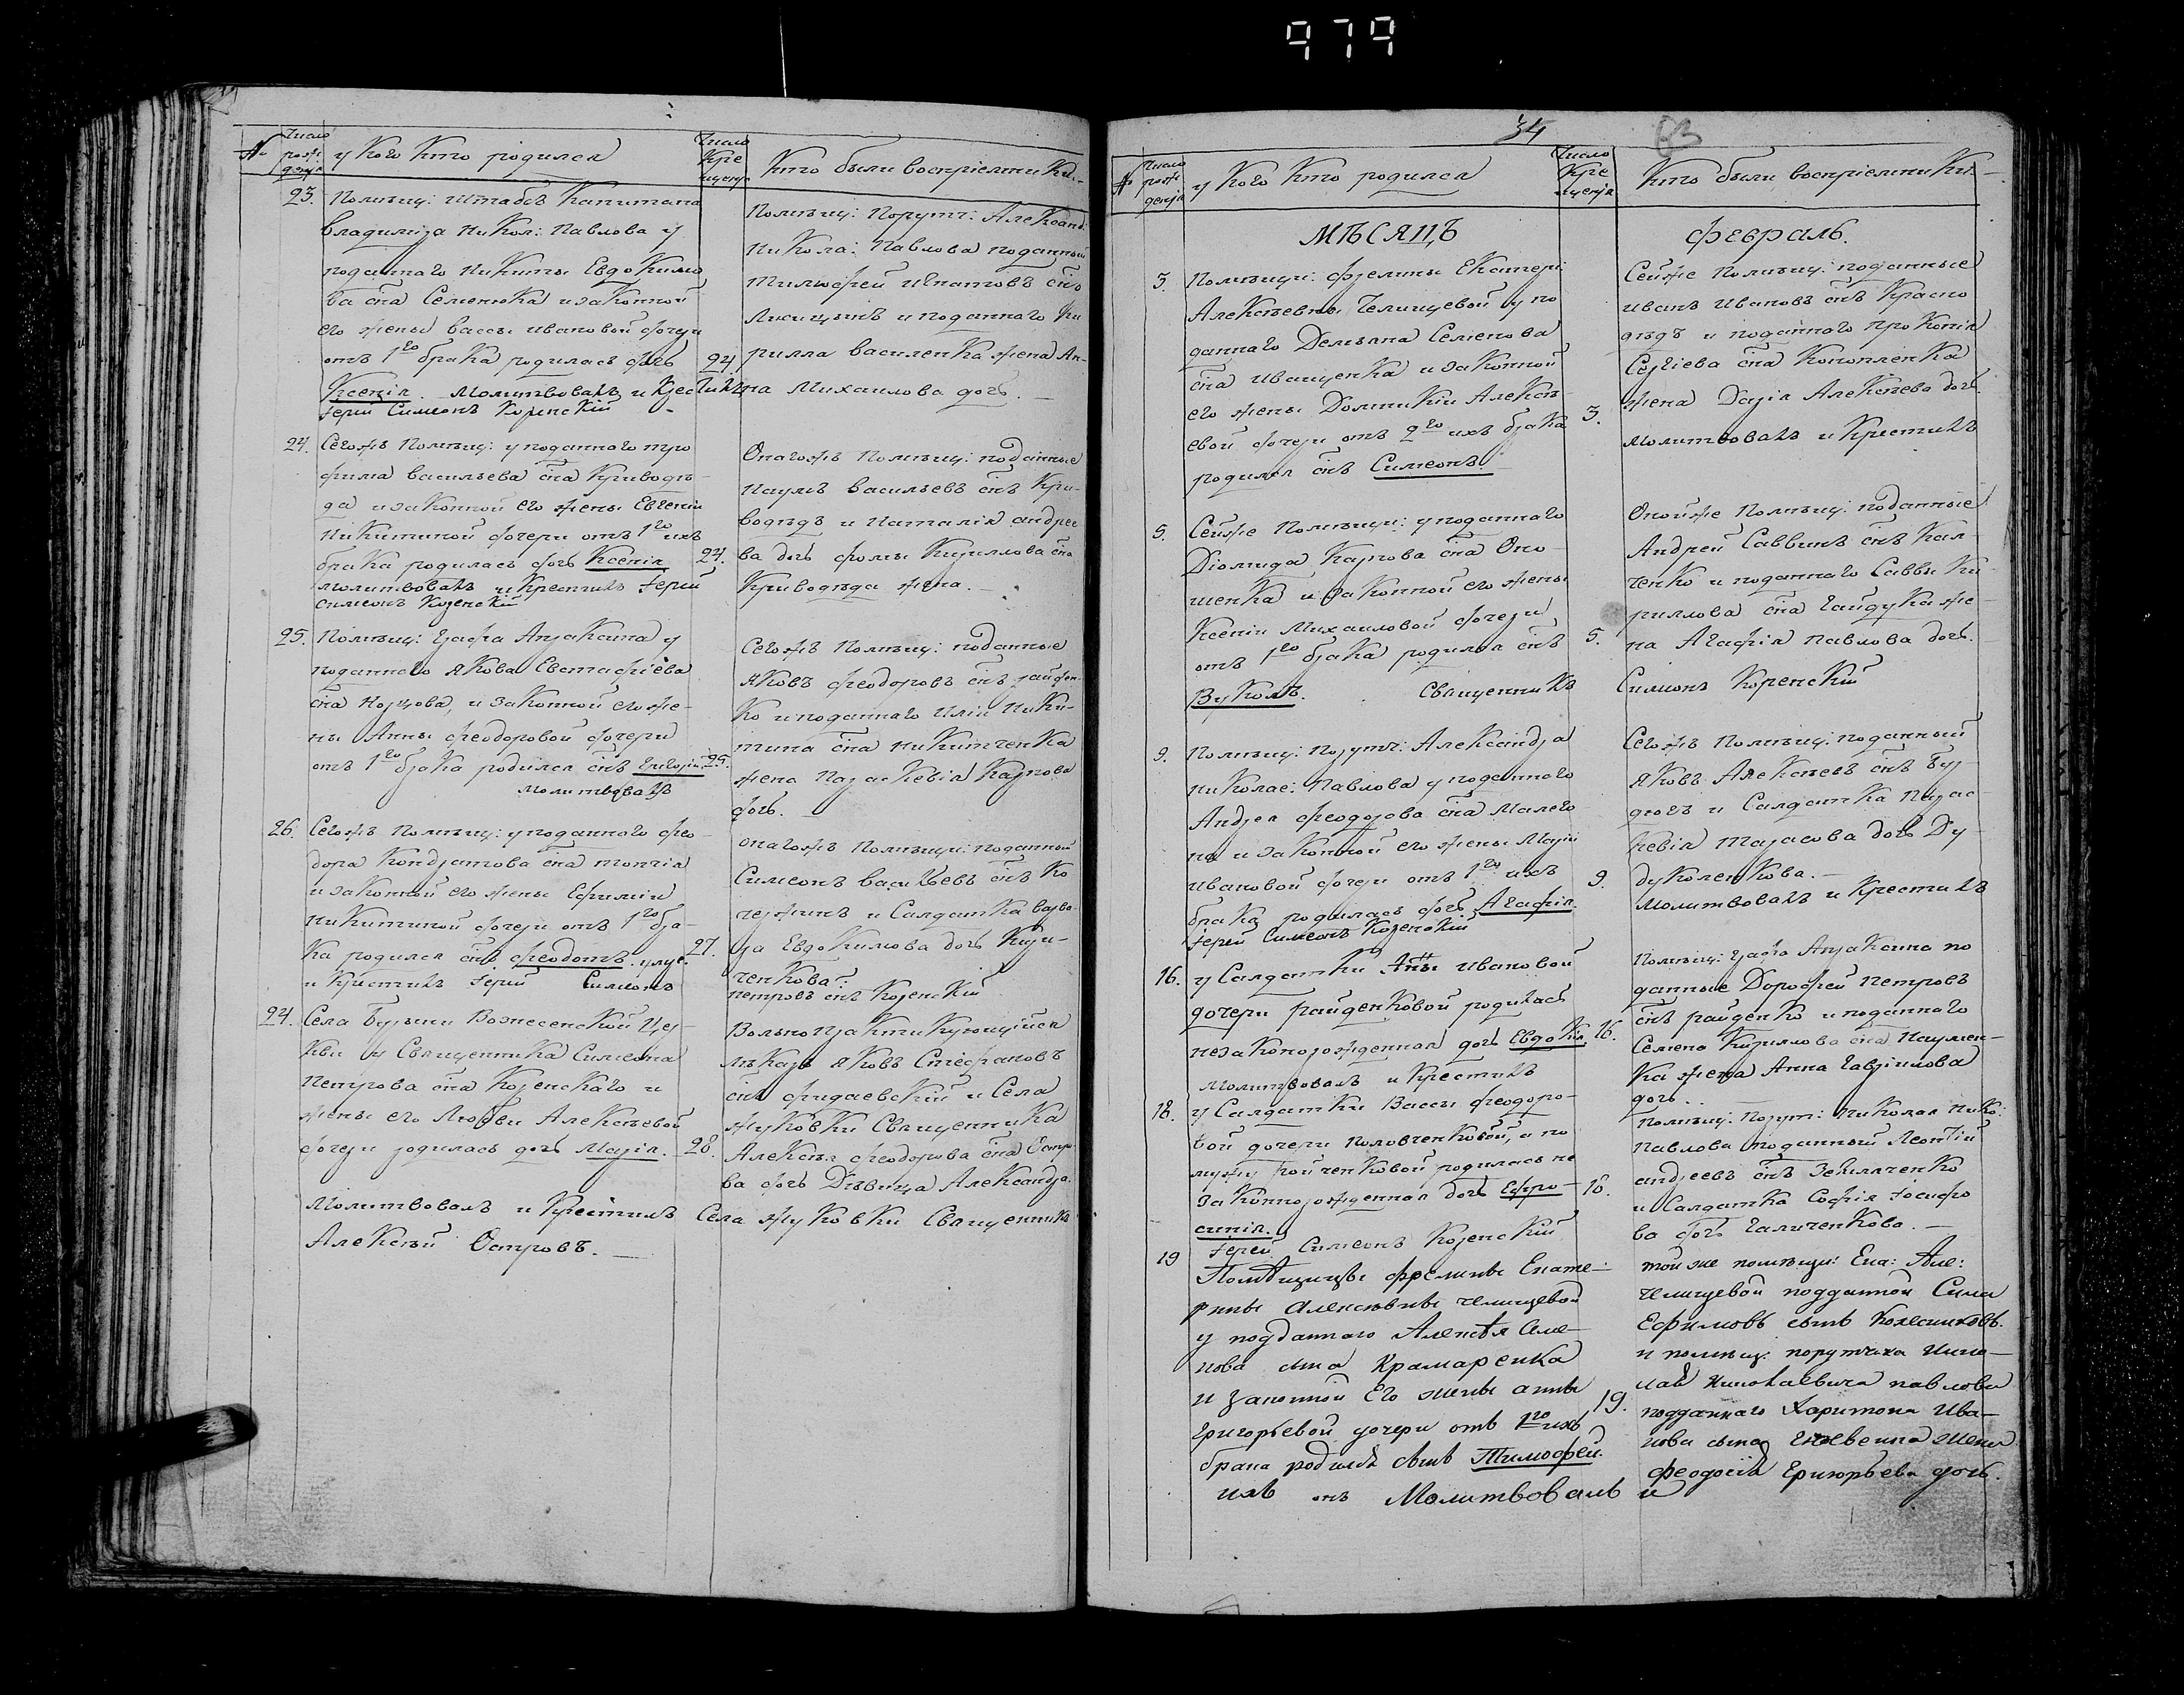 979
№
Число рождения
у Кого Кто родился
Число Крещения
Кто были воспріемники
23.
Помѣщ: штабсъ Капитана
Владиміра Никол: Павлова у
поданнаго Никиты Евдокимо
ва сна Семенюка и законной
его жены Вассы Ивановой дочери
отъ 1го брака родилась дочь
Ксенія. Молитвовалъ и Крестилъ
Іерей Симеонъ Коренскій
24.
Помѣщ: Порутч: Александ:
Никола: Павлова поданный
Тимофей Игнатовъ снъ
Лисицынъ и поданнаго Ки
рилла Василенка жена Ан-
на Михаилова дочь.
24.
Сегожъ Помѣщ: у поданнаго Тро
фима Васильева сна Криводѣ-
да и законной его жены Евгеніи
Никитиной дочери отъ 1го ихъ
брака родилась дочь Ксенія
молитвовалъ и Крестилъ Іерей
Симеонъ Коренскій
24.
Онагожъ Помѣщ: поданные
Наумъ Васильевъ снъ Кри-
водѣдъ и Наталія Андрее
ва дочь Фомы Кириллова сна
Криводѣда жена.
25.
Помѣщ: Графа Апраксина у
поданнаго Якова Евстафіева
сна Норцова, и законной его же-
ны Анны Феодоровой дочери
отъ 1го брака родился снъ Григорій
молитвовалъ
25.
Сегожъ Помѣщ: поданные
Яковъ Феодоровъ снъ Райден-
ко и поданнаго Иліи Ники-
тина сна Никитченка
жена Параскевія Карпова
дочь.
26.
Сегожъ Помѣщ: у поданнаго Фео-
дора Кондратова сна
и законной его жены Ефиміи
Никитиной дочери отъ 1го бра-
ка родился снъ Феодотъ.
и Крестилъ Іерей Симеонъ
27.
Онагожъ Помѣщи: поданной
Симеонъ Васильевъ снъ Ко
чержинъ и Салдатка Варва-
ра Евдокимова дочь
ченкова.
Петровъ снъ Коренскій
24.
Села Бурыни Вознесенской Цер-
кви у Священника Симеона
Петрова сна Коренскаго и
жены его Любви Алексѣевой
дочери родилась дочь Марія.
Молитвовалъ и Крестилъ Села Жуковки Священникъ
Алексѣй Островъ.
28.
Вольнопрактикующійся
лѣкарь Яковъ Стефановъ
снъ Фидаевскій и Села
Жуковки Священника
Алексѣя Феодорова сна Остро-
ва дочь Дѣвица Александра.
34
63
№
Число рождения
у Кого Кто родился
Число Крещения
Кто были воспріемники
МѢСЯЦЪ
Февраль.
3.
Помѣщи: Фрелины Екатери:
Алексѣевны Челищевой у по
даннаго Демьяна Семенова
сна Иващенка и законной
его жены Домникіи Алексѣ-
евой дочери отъ 2го ихъ брака
родился снъ Симеонъ.
3.
Сейже Помѣщ: поданные
Иванъ Ивановъ снъ Красно
дѣдъ и поданнаго Прокопія
Сергіева сна Коноплѣнка
жена Дарія Алексѣева дочь.
молитвовалъ и Крестилъ
5.
Сейже Помѣщи: у поданнаго
Діомида Карпова сна Оно-
шенка и законной его жены
Ксеніи Михаиловой дочери
отъ 1го брака родился снъ
Вуколъ. Священникъ Симеонъ Коренскій
5.
Онойже Помѣщ: поданные
Андрей Саввинъ снъ Кал-
ченко и поданнаго Саввы Ки-
риллова сна Гайдука же-
на Агафія Павлова дочь.
9.
Помѣщ: Порутч: Александра
Николае: Павлова у поданнаго
Андрея Феодорова сна Малего-
на и законной его жены Маріи
Ивановой дочери отъ 1го ихъ
брака родилась дочь Агафія.
Іерей Симеонъ Коренскій
9.
Сегожъ Помѣщ: поданный
Яковъ Алексѣевъ снъ Бур-
дюгъ и Салдатка Парас-
кевія Тарасова дочь Ду-
дуколенкова.
Молитвовалъ и Крестилъ
16.
у Салдатки Анны Ивановой
дочери Райденковой родилась
незаконорожденная дочь Евдокія
Молитвовалъ и Крестилъ
16.
Помѣщ: Графа Апраксина по
данные Дорофей Петровъ
снъ Райденко и поданнаго
Семена Кириллова сна Наумен-
ка жена Анна Гавріилова
дочь.
18.
у Салдатки Вассы Феодоро-
вой дочери Половченковой, а по
мужу Койченковой родилась не
законнорожденная дочь Ефро-
синія.
Іерей Симеонъ Коренскій
18.
Помѣщ: Порут: Николая Нико:
Павлова поданный Леонтій
Андреевъ снъ Зекилаченко
и Салдатка Софія Іосифо
ва дочь Галиченкова.
19
Помѣщицы фрелины Екате-
рины Алексѣвны Челищевой
у подданнаго Алексѣя Семе-
нова сына Крамаренка
и законной Его жены Анны
Григорьевой дочери отъ 1го ихъ
брака родился сынъ Тимофей.
ихъ онъ Молитвовалъ и
19.
той же помѣщи: Ека: Але:
Челищевой подданной Сила
Ефимовъ сынъ Колесниковъ.
и помѣщ: порутчика Нико-
лая Николаевича Павлова
подданнаго Харитона Ива-
нова сына Еновенка жена
Феодосія Григорьева дочь.